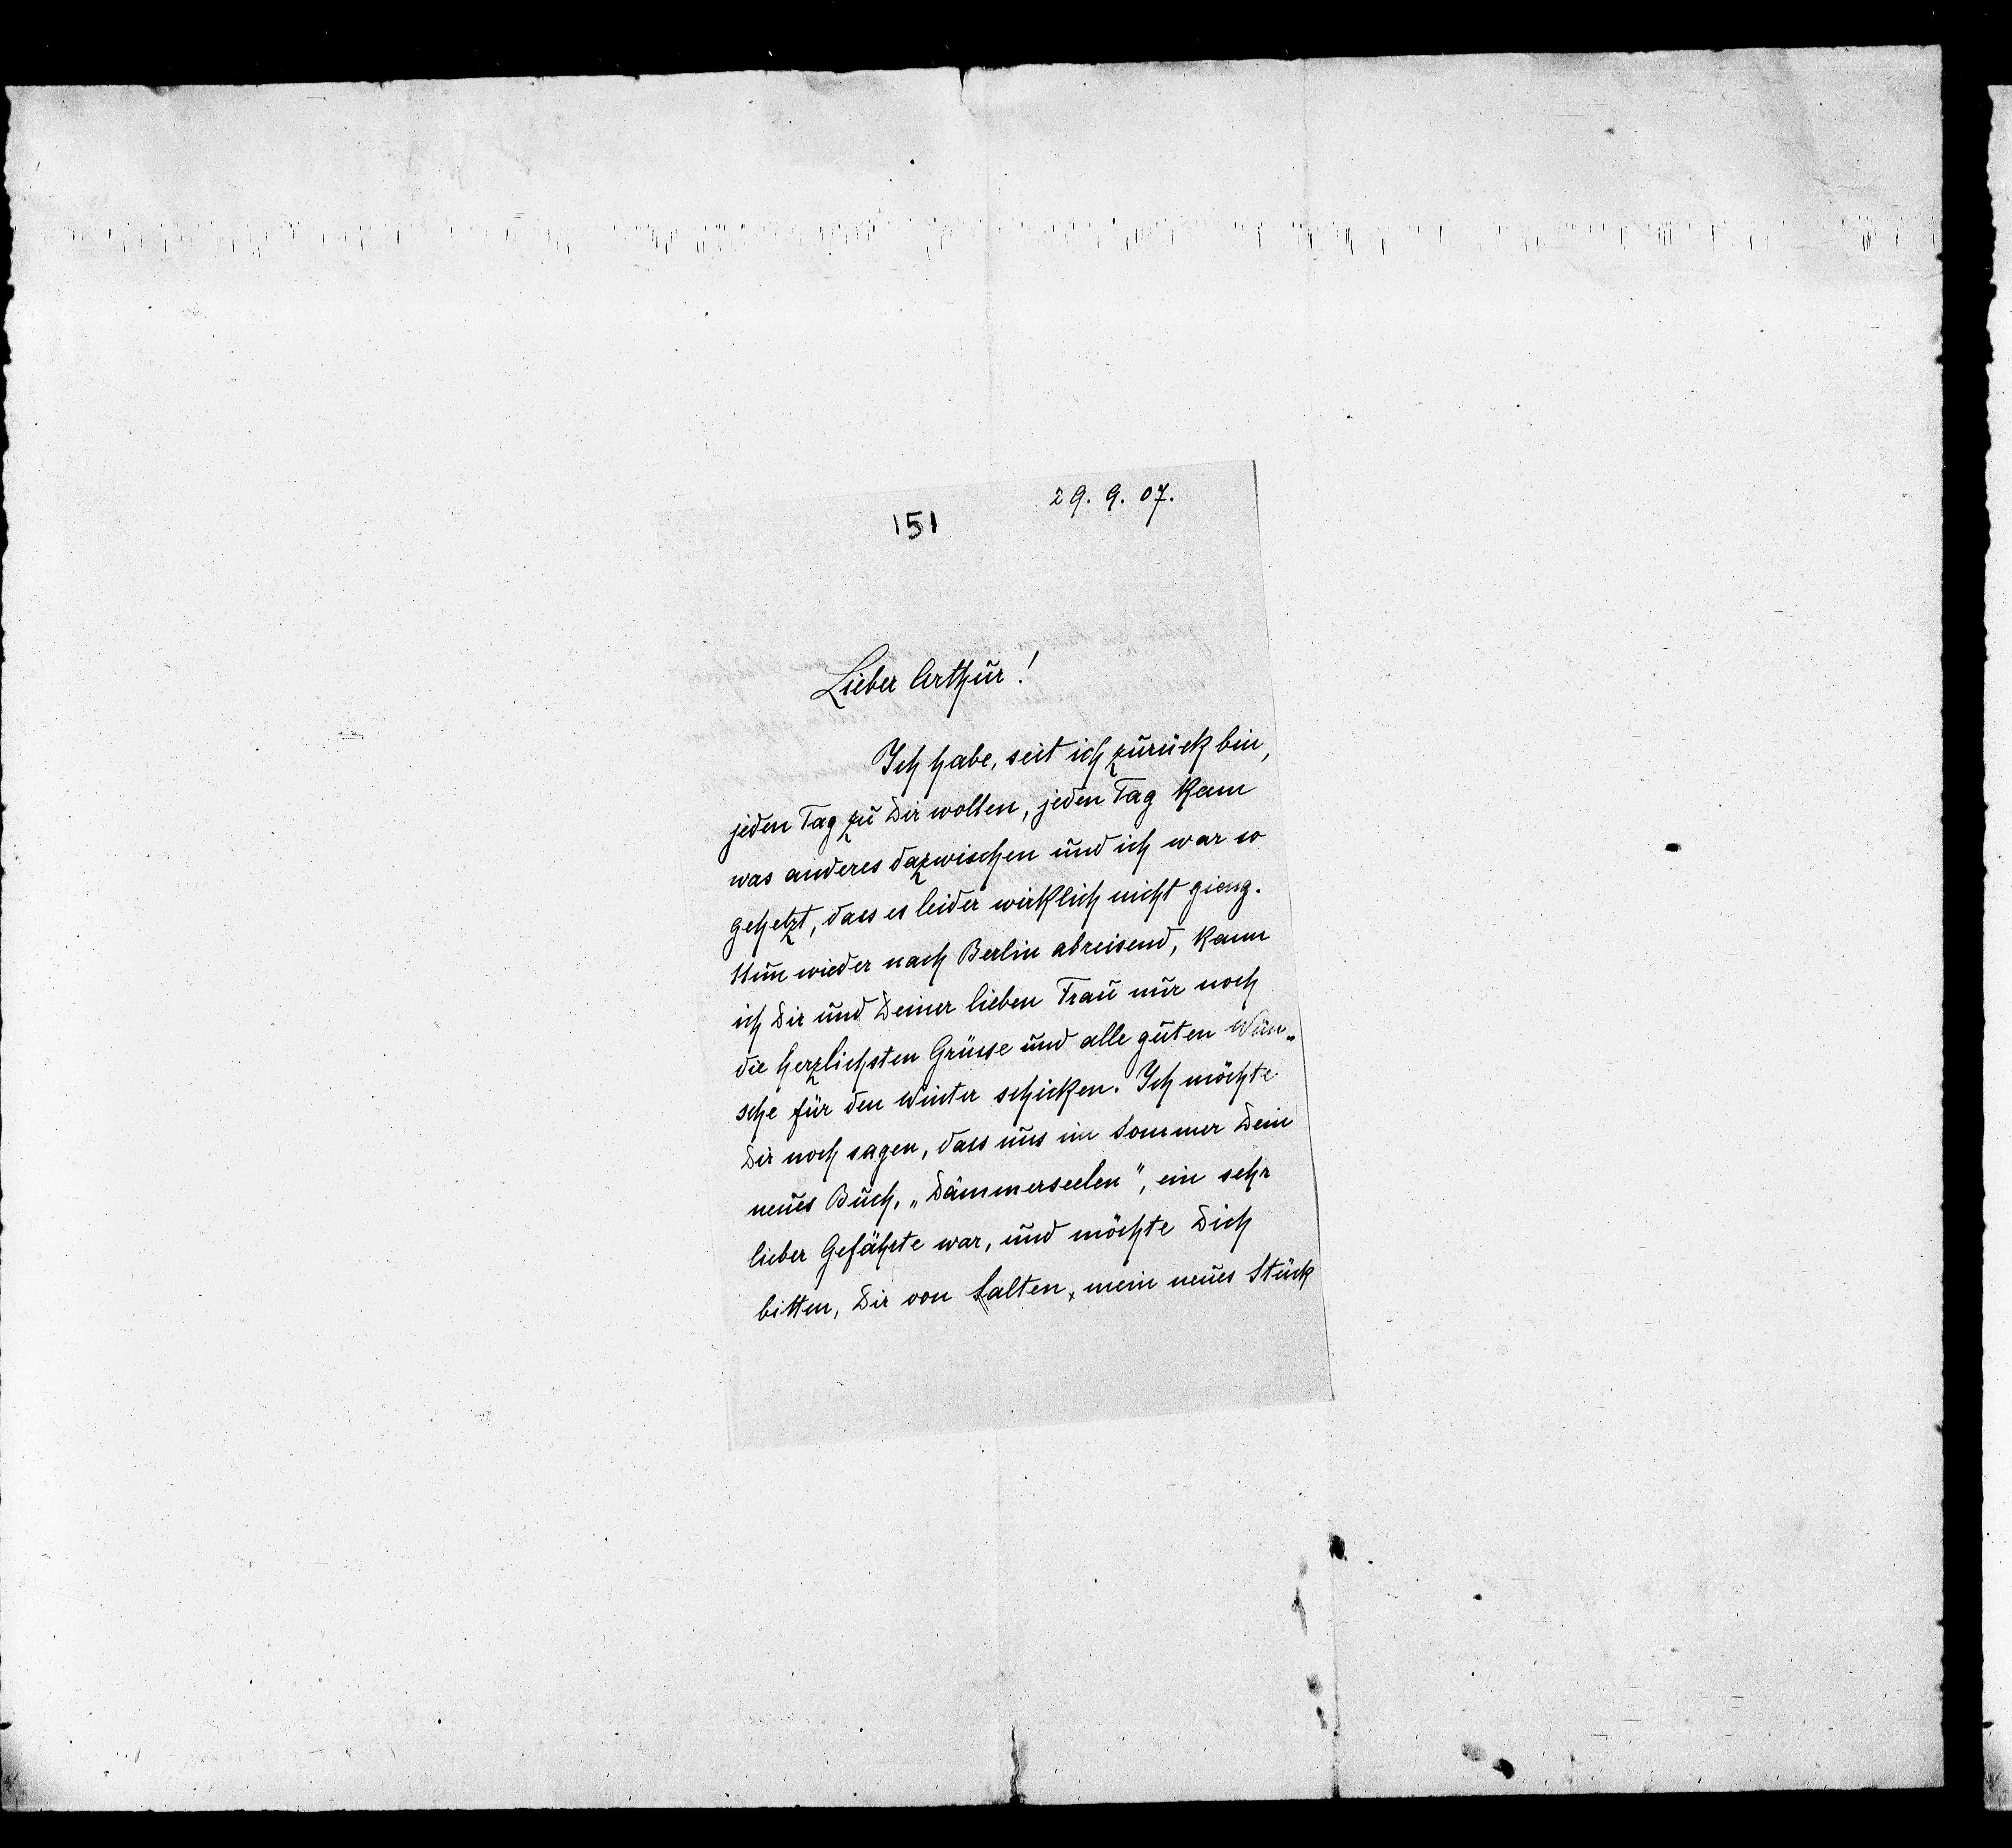 29. 9. 07.
151
Lieber Arthur!
Ich habe, seit ich zurück bin,
jeden Tag zu Dir wollen, jeden Tag kam
was anderes dazwischen und ich war so
gehetzt, dass es leider wirklich nicht gieng.
Nun wieder nach Berlin abreisend, kann
ich Dir und Deiner lieben Frau nur noch
die herzlichsten Grüsse und alle guten Wün„
sche für den Winter schicken. Ich möchte
Dir noch sagen, dass uns im Sommer Dein
neues Buch, „Dämmerseelen", ein sehr
lieber Gefährte war, und möchte Dich
bitten, Dir von Salten, mein neues Stück